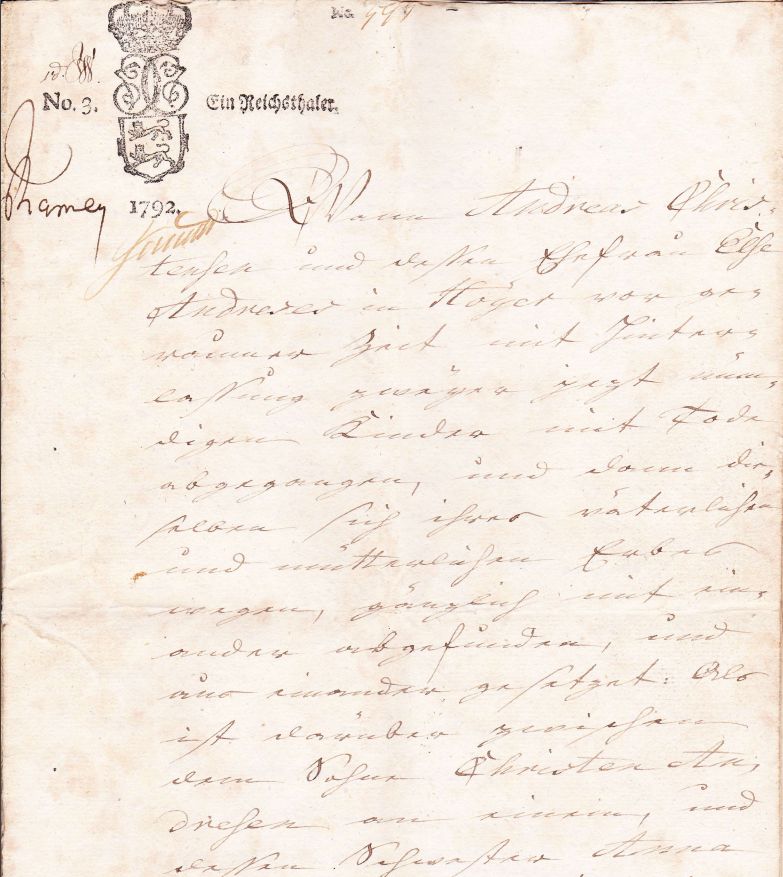 No. 797
No. 3.
Ein Reichsthaler.
1792.
Wann Andreas Chris-
tensen und dessen Ehefrau Else
Andreses in Höyer vor ge-
raumer Zeit mit Hinter-
lassung zweyer jezt mün-
digen Kinder mit Tode
abgegangen, und dann die-
selben sich ihres väterlichen
und mütterlichen Erbes
wegen, gänzlich mit ein-
ander abgefunden, und
aus einander gesetzet. Als
ist darüber zwischen
dem Sohne Christen An-
dresen an einem, und
dessen Schwester Anna